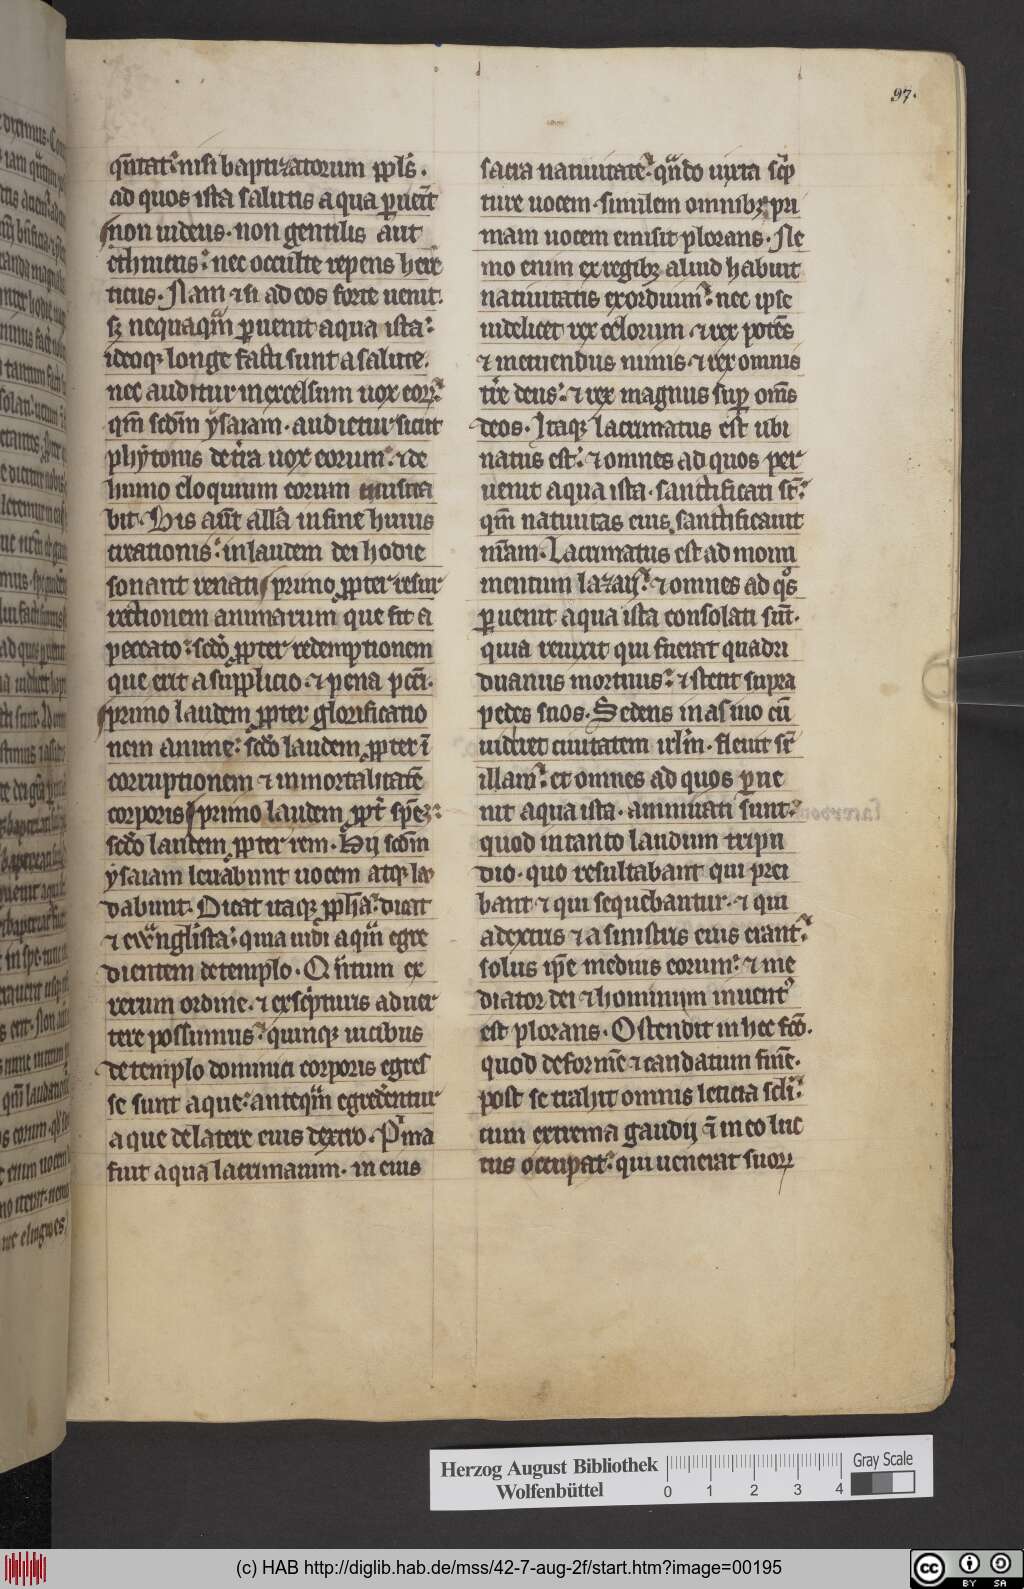 97.
qn̄tat᷑ nisi baptizatorum ppl̄s.
ad quos ista salutis aqua ꝑuen̄t
non iudeus. non gentilis aut
ethnicus. nec occulte repens here
ticus. Nam ⁊ si ad eos forte uenit.
sꝫ nequaqͣm ꝑuenit aqua ista.
ideoqꝫ longe facti sunt a salute.
nec auditur in excelsum uox eoꝝ.
qm̄ scdm̄ ysaiam. audietur sicut
phytonis de tr̄a uox eorum. ⁊ de
humo eloquium eorum musita
bit. His aut̄ all̄a in fine huius
creationis. in laudem dei hodie
sonant renati primo ꝓpter resur
rectionem animarum que fit a
peccato. scd̄o ꝓpter redemptionem
que erit a supplicio. ⁊ pena pccī.
primo laudem ꝓpter glorificatio
nem anime. scd̄o laudem ꝓpter ī
corruptionem ⁊ inmortalitatē
corporis primo laudem ꝓpt᷑ spēꝫ.
scd̄o laudem ꝓpter rem. Hij scdm̄
ysaiam leuabunt uocem atqꝫ lau
dabunt. Dicat itaqꝫ ꝓpħa. dicat
⁊ ewͣnglista. quia uidi aqͣm egre
dientem de templo. Qn̄tum ex
rerum ordine. ⁊ ex scͥpturis aduer
tere possumus. quinqꝫ uicibus
de templo dominici corporis egres
se sunt aque. anteqͣm egrederentur
aque de latere eius dextro. Pͥma
fuit aqua lacrimarum. in eius
sacra natiuitate. qͣndo iuxta scͥp
ture uocem. similem omnibꝫ pri
mam uocem emisit plorans. Ne
mo enim ex regibꝫ aliud habuit
natiuitatis exordium. nec ipse
uidelicet rex celorum. ⁊ rex potēs
⁊ metuendus nimis. ⁊ rex omnis
tr̄e deus. ⁊ rex magnus suꝑ om̄s
deos. Itaqꝫ lacrimatus est ubi
natus est. ⁊ omnes ad quos per
uenit aqua ista. sanctificati st̄.
qm̄ natiuitas eius sanctificauit
nr̄am. Lacrimatus est ad monu
mentum lazarij. ⁊ omnes ad qͦs
ꝑuenit aqua ista consolati sūt.
quia reuixit qui fuerat quadri
duanus mortuus. ⁊ stetit supra
pedes suos. Sedens in asino cū
uideret ciuitatem irl̄m. fleuit sr̄
illam. et omnes ad quos ꝑue
nit aqua ista. ammirati sunt.
quod in tanto laudum tripu
dio. quo resultabant qui prei
bant ⁊ qui sequebantur. ⁊ qui
a dextris ⁊ a sinistris eius erant.
solus ip̄e medius eorum. ⁊ me
diator dei ⁊ hominum inuentꝰ
est plorans. Ostendit in hec fcō.
quod deformē ⁊ caudatum finē.
post se trahit omnis leticia scl̄i.
cum extrema gaudij ⁊ in eo luc
tus occupat. qui uenerat suoꝝ
Herzog August Bibliothek
Wolfenbüttel
0 1 2 3 4
Gray Scale
(c) HAB http://diglib.hab.de/mss/42-7-aug-2f/start.htm?image=00195
cc BY SA